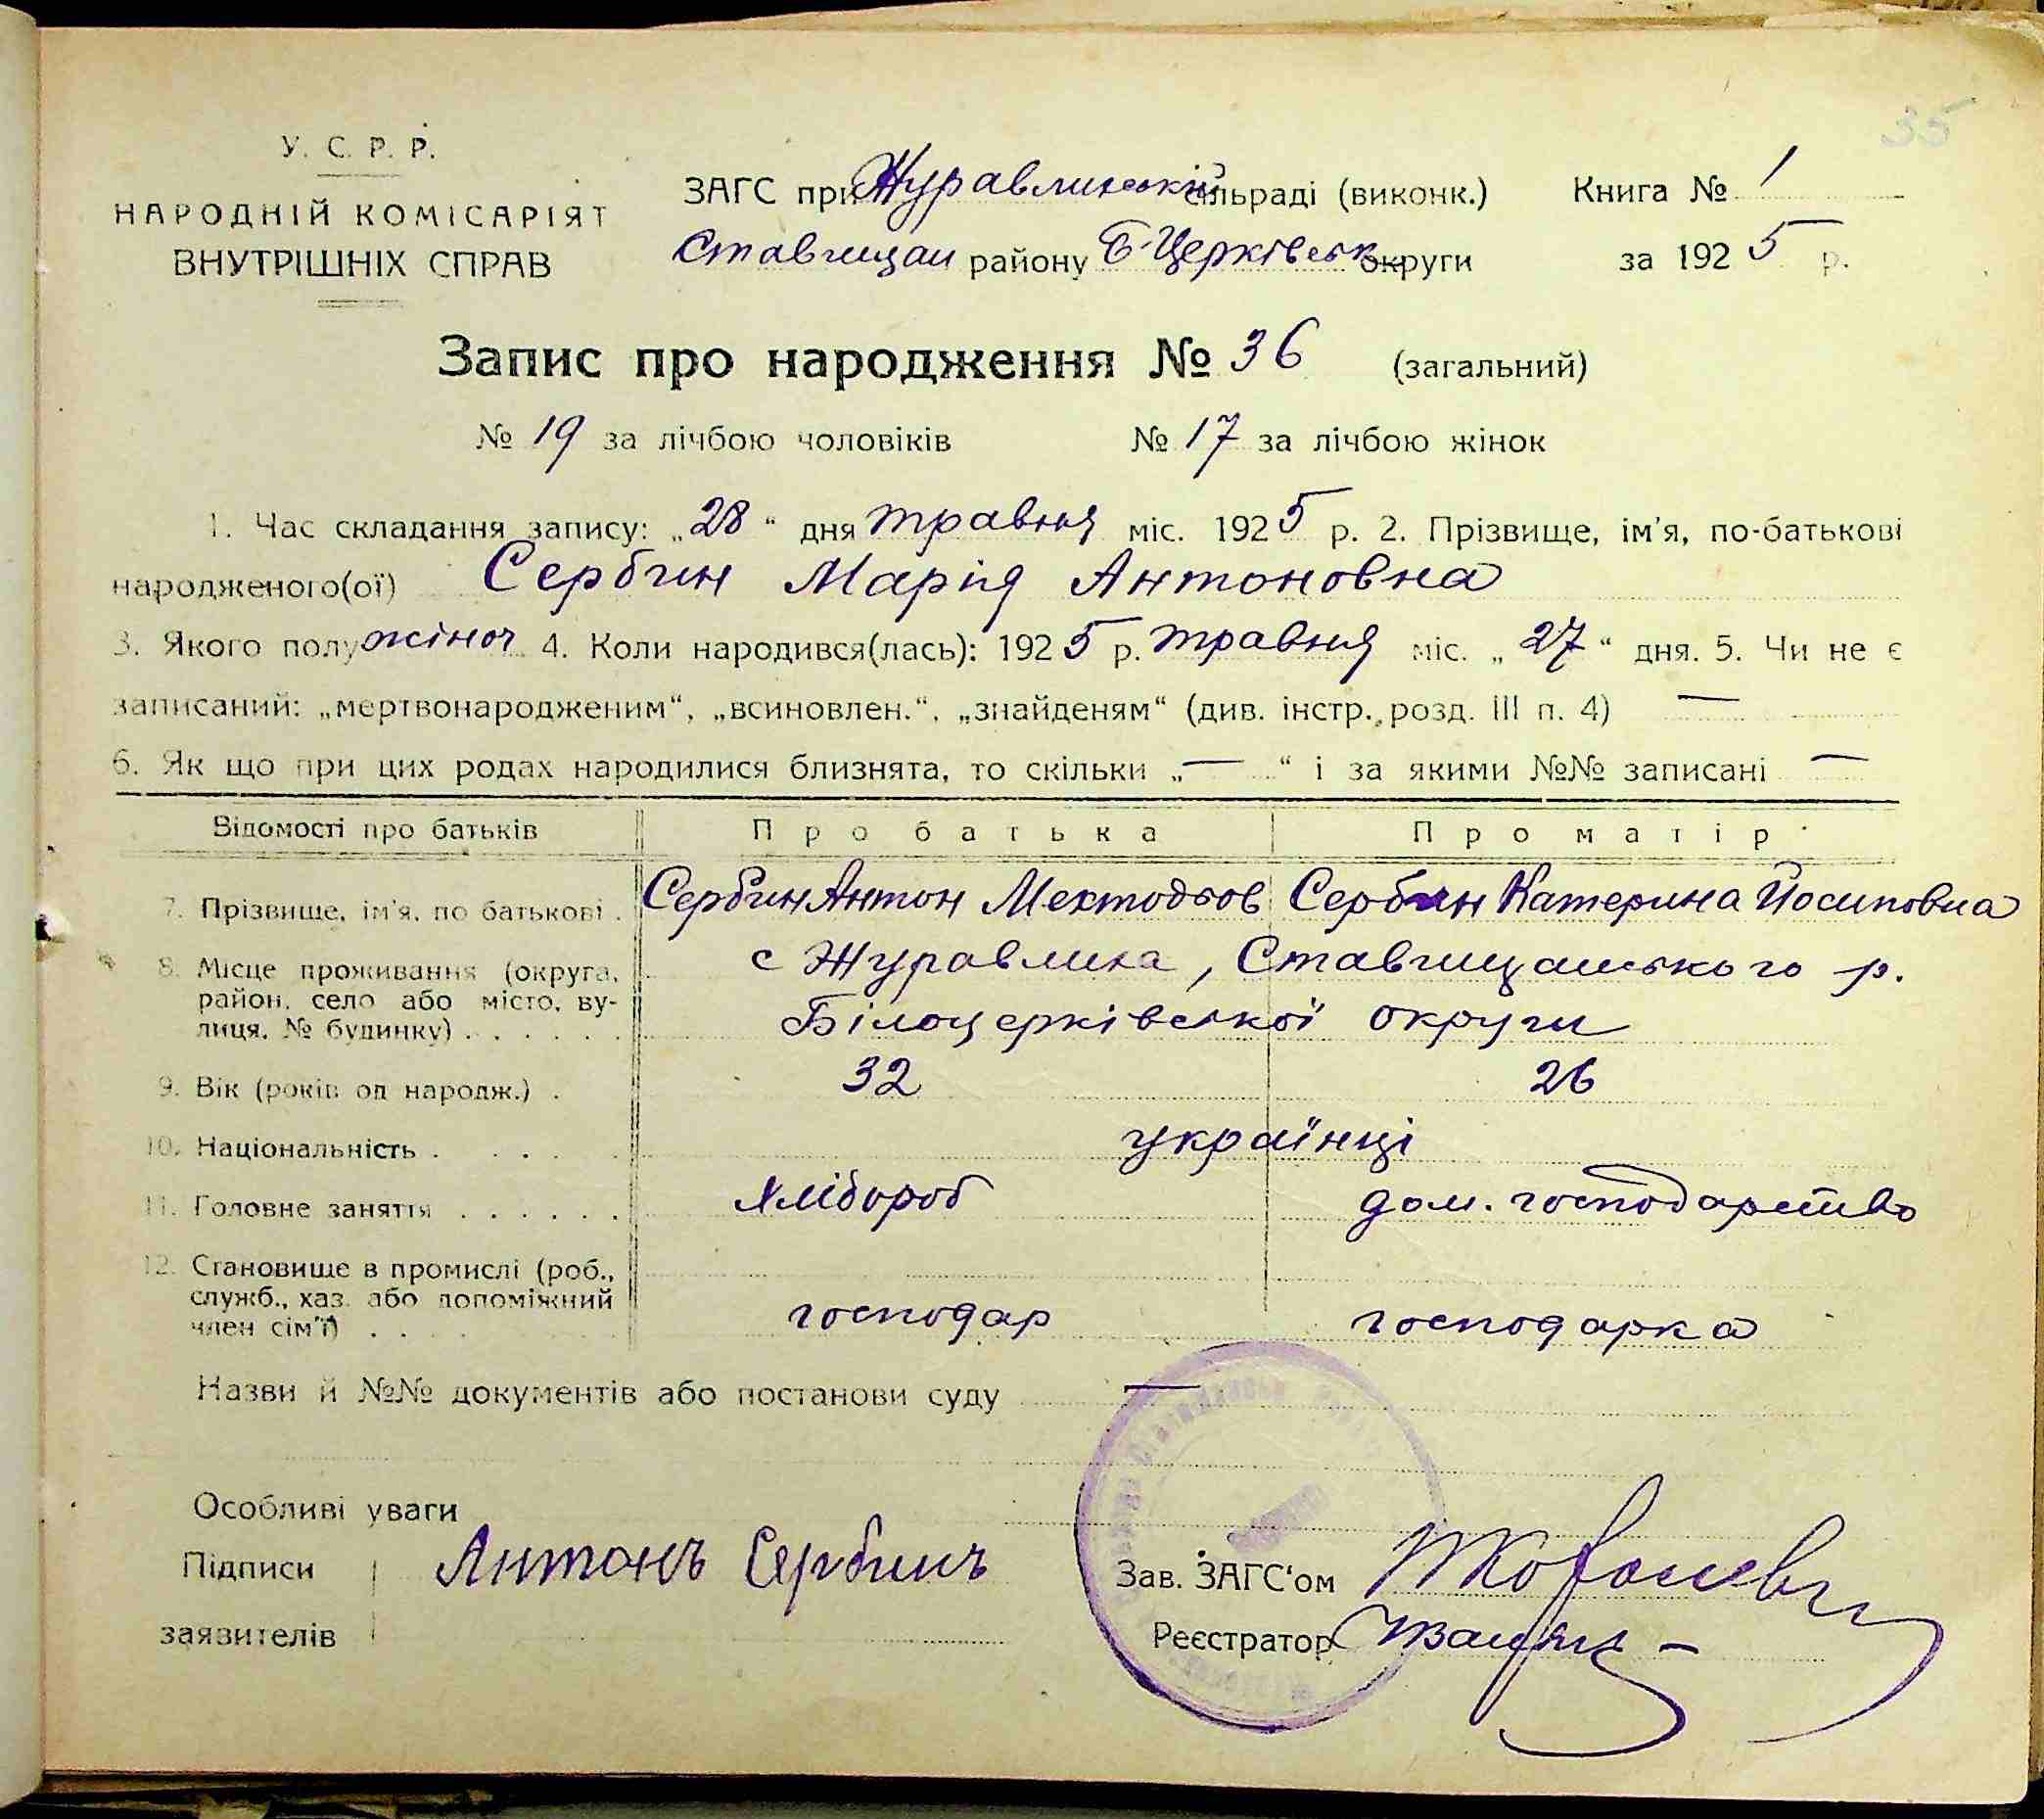 35
У. С. Р. Р.
НАРОДНІЙ КОМІСАРІЯТ
ВНУТРІШНІХ СПРАВ
ЗАГС при Журавлинській сільраді (виконк.) Книга № 1
Ставищан району Б-Церківськ округи за 1925 р.
Запис про народження № 36 (загальний)
№ 19 за лічбою чоловіків № 17 за лічбою жінок
1. Час складання запису: „28“ дня травня міс. 1925 р. 2. Прізвище, ім'я, по-батькові
народженого(ої) Сербин Марія Антоновна
3. Якого полу жіноч 4. Коли народився(лась): 1925 р. травня міс. „27“ дня. 5. Чи не є
записаний: „мертвонародженим“, „всиновлен.“, „знайденям“ (див. інстр., розд. III п. 4) —
6. Як що при цих родах народилися близнята, то скільки „—“ і за якими №№ записані —
Відомості про батьків Про батька Про матір
7. Прізвище, ім'я, по батькові . Сербин Антон Мектодьов Сербин Катерина Йосиповна
8. Місце проживання (округа, район, село або місто, вулиця, № будинку) . . . . . .
с Журавлиха, Ставищанського р.
Білоцерківської округи
9. Вік (років од народж.) . 32 26
10. Національність . . . . українці
11. Головне заняття . . . . . . Хлібороб дом. господарство
12. Становище в промислі (роб.,
служб., хаз. або допоміжний
член сім'ї) . . господар господарка
Назви й №№ документів або постанови суду —
Особливі уваги
Підписи заявителів Антонъ Сербинъ
Зав. ЗАГС'ом
Реєстратор